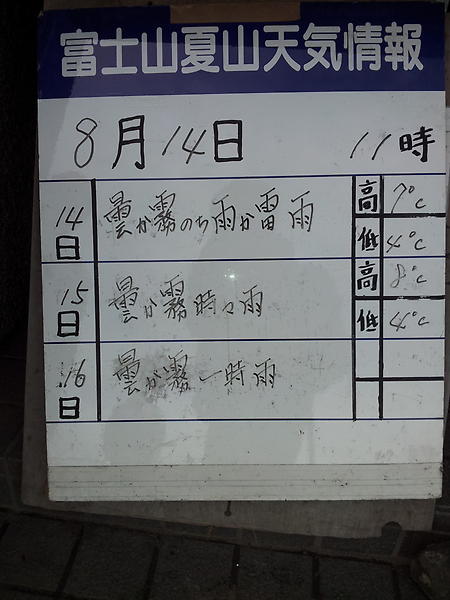 富士山夏山天気情報
8月14日 11時
14日 曇か霧のち雨か雷雨 高 7℃
低 4℃
15日 曇か霧時々雨 高 8℃
低 4℃
16日 曇か霧一時雨